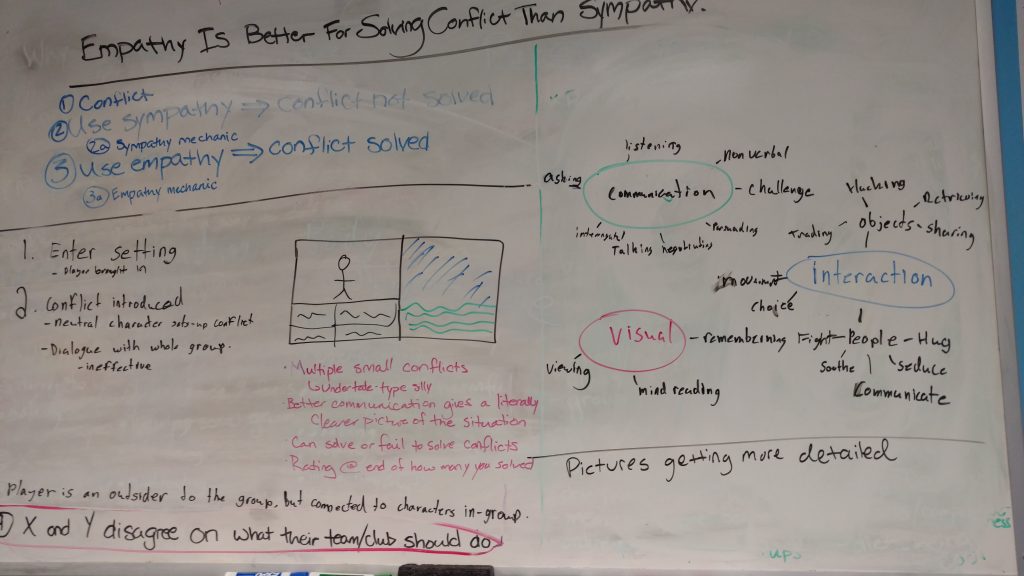 Empathy Is Better For Solving Conflict Than Sympathy.
① Conflict
② Use sympathy ⇒ conflict not solved
2a Sympathy mechanic
③ Use empathy ⇒ conflict solved
3a) Empathy mechanic
1. Enter setting
- Player brought in
2. Conflict introduced
- neutral character sets-up conflict
- Dialogue with whole group.
- ineffective
· Multiple small conflicts
↳ Undertale-type silly
· Better communication gives a literally
Clearer picture of the situation
· Can solve or fail to solve conflicts
· Rating @ end of how many you solved
Player is an outsider do the group, but connected to characters in-group.
1) X and Y disagree on what their team/club should do
listening
nonverbal
asking
Communication
- challenge
Persuading
negotiating
Talking
Hacking
Retrieving
Trading - objects - sharing
Interaction
movement
choice
Fight - People - Hug
Soothe
Seduce
Communicate
Visual - remembering
viewing
mind reading
Pictures getting more detailed
ess
ups